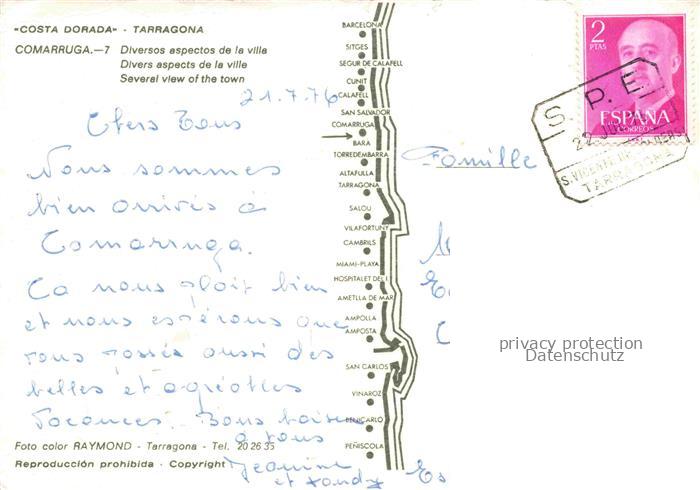 "COSTA DORADA" - TARRAGONA
COMARRUGA.—7 Diversos aspectos de la villa
Divers aspects de la ville
Several view of the town
21.7.76
Chers Tous
Nous sommes
bien arrivés à
Comarruga.
Ca nous plait bien
et nous espérons que
vous passés aussi des
belles et agréables
vacances. Bons baisers
a tous
Jeanine
et
Foto color RAYMOND - Tarragona - Tel. 20 26 35
Reproducción prohibida - Copyright
BARCELONA
SITGES
SEGUR DE CALAFELL
CUNIT
CALAFELL
SAN SALVADOR
COMARRUGA
BARA
TORREDEMBARRA
ALTAFULLA
TARRAGONA
SALOU
VILAFORTUNY
CAMBRILS
MIAMI-PLAYA
HOSPITALET DEL I.
AMETLLA DE MAR
AMPOLLA
AMPOSTA
SAN CARLOS
VINAROZ
BENICARLO
PEÑISCOLA
Famille
2
PTAS
ESPAÑA
CORREOS
S. P. E.
22 JUL
TARRAGONA
privacy protection
Datenschutz